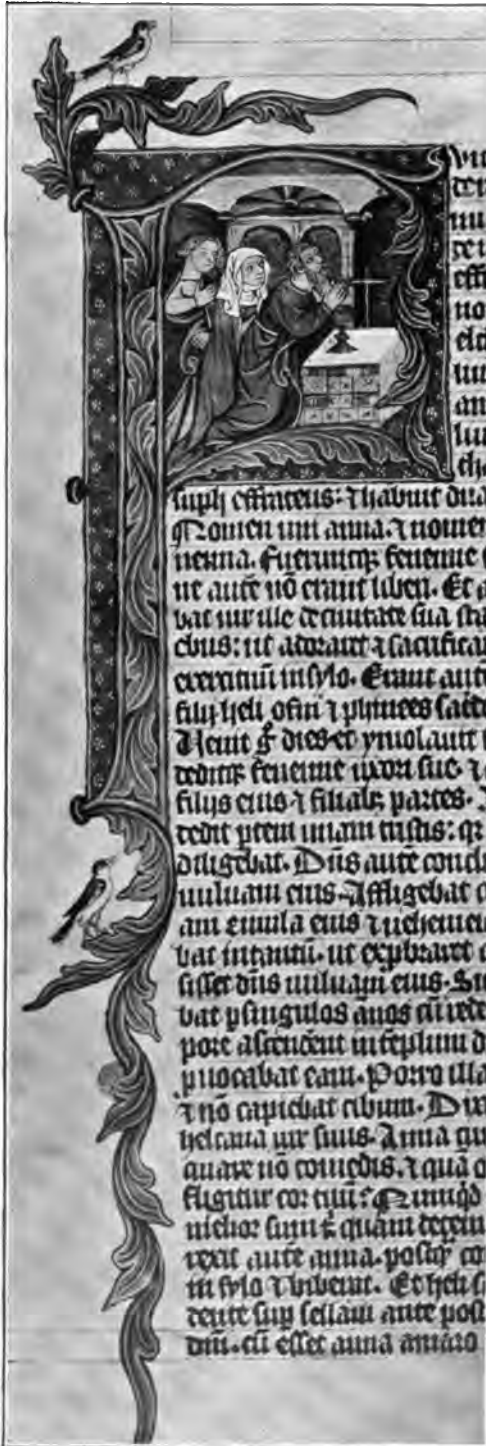 effr
no
elch
an
tha
suph effrateus: ⁊ habuit dua
Nomen uni anna. ⁊ nomen
nenna. Fueruntq; fenenne
ne autē nō erant liberi. Et a
bat uir ille de ciuitate sua sta
ebus: ut adoraret ⁊ sacrifica
exercituū in sylo. Erant aut
filij heli ofni ⁊ phinees sace
Uenit dies et ymolauit
deditq; fenenne uxori sue. ⁊
filijs eius ⁊ filiab; partes.
dedit ptem unam tristis: q
diligebat. Dn̄s autē conclu
uuluam eius. Affligebat
am emula eius ⁊ uehemen
bat intantū. ut expbraret
sisset dn̄s uuluam eius. Si
bat psingulos ānos cū rede
pore ascendent in tēplum d
puocabat eam. Porro illa
⁊ nō capiebat cibum. Dix
helcana uir suus. Anna cu
quare nō comedis. ⁊ quā o
fligitur cor tuū? Nunqd
melior sum quam decem
rexit autē anna. postq co
in sylo ⁊ biberat. Et heli
dente sup sellam ante post
dn̄i. cū esset anna amaro